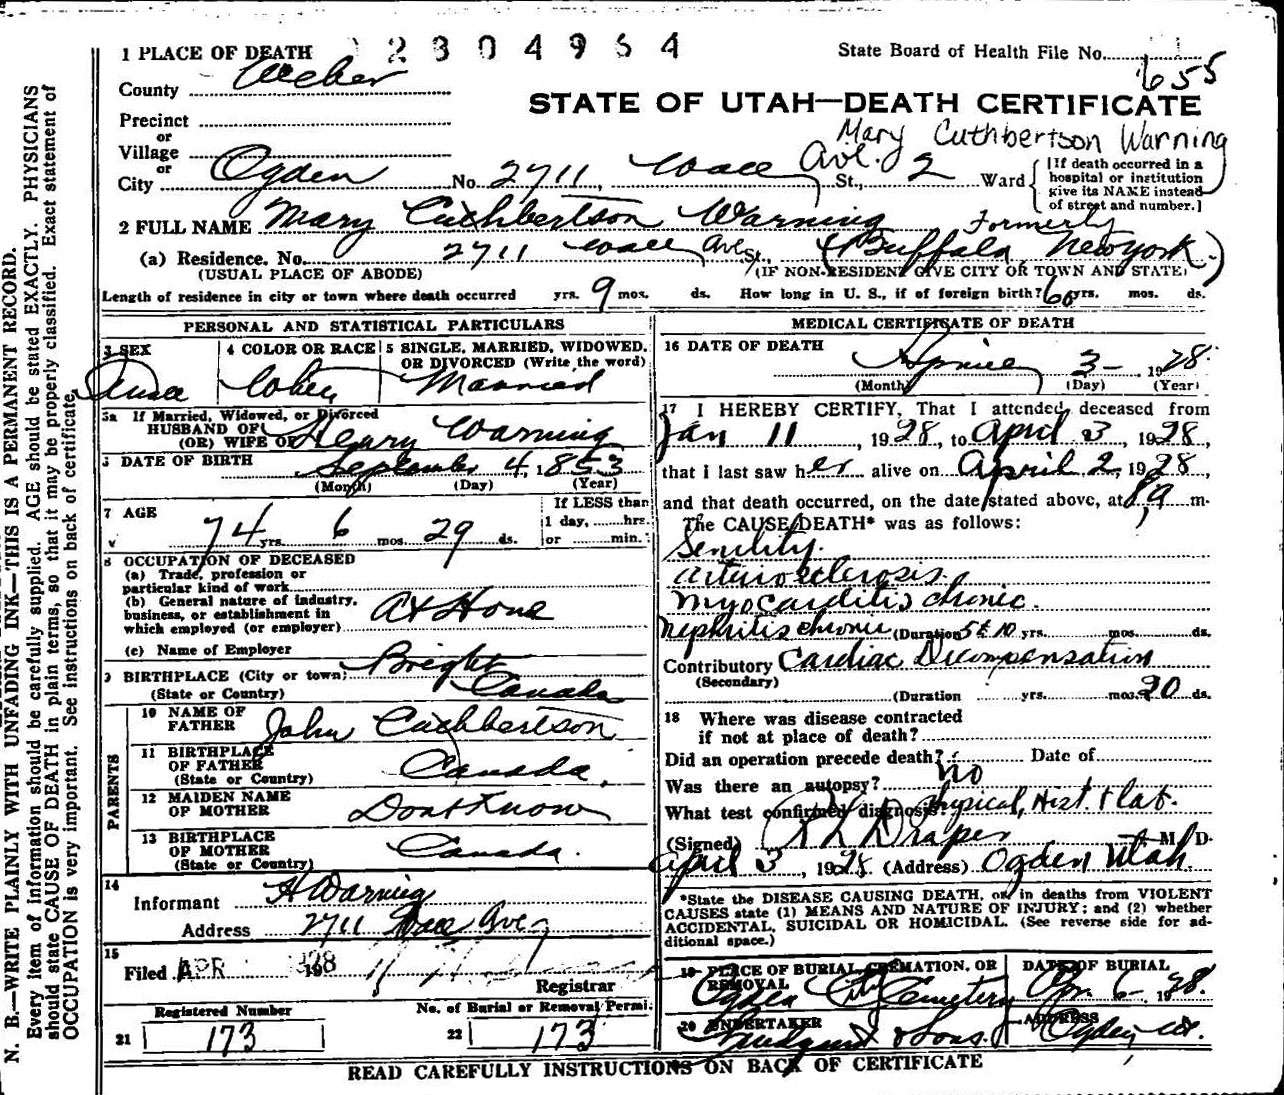 1 PLACE OF DEATH
2304954
State Board of Health File No.
655
County Weber
STATE OF UTAH—DEATH CERTIFICATE
Precinct
or
Mary Cuthbertson Warning
Village
or
City Ogden No. 2711, Ave. St., 2 Ward
[If death occurred in a hospital or institution give its NAME instead of street and number.]
2 FULL NAME Mary Cuthbertson Warning
Formerly
(a) Residence. No. 2711 Ave St., (Buffalo, New York.)
(USUAL PLACE OF ABODE) (IF NON-RESIDENT GIVE CITY OR TOWN AND STATE)
Length of residence in city or town where death occurred yrs. 9 mos. ds. How long in U. S., if of foreign birth? 60 yrs. mos. ds.
PERSONAL AND STATISTICAL PARTICULARS
3 SEX 4 COLOR OR RACE 5 SINGLE, MARRIED, WIDOWED, OR DIVORCED (Write the word)
Married
5a If Married, Widowed, or Divorced
HUSBAND OF
(OR) WIFE OF Henry Warning
DATE OF BIRTH September 4, 1853
(Month) (Day) (Year)
7 AGE If LESS than
74 yrs. 6 mos. 29 ds. 1 day, hrs. or min.
8 OCCUPATION OF DECEASED
(a) Trade, profession or particular kind of work
(b) General nature of industry, business, or establishment in which employed (or employer) At Home
(c) Name of Employer
9 BIRTHPLACE (City or town) Bright
(State or Country) Canada
PARENTS
10 NAME OF FATHER John Cuthbertson
11 BIRTHPLACE OF FATHER (State or Country) Canada.
12 MAIDEN NAME OF MOTHER Dont Know
13 BIRTHPLACE OF MOTHER (State or Country) Canada.
14
Informant H Warning
Address 2711 Ave
15
Filed APR 1928
Registrar
Registered Number No. of Burial or Removal Permi
21 173 22 173
MEDICAL CERTIFICATE OF DEATH
16 DATE OF DEATH
April 3 - 1928.
(Month) (Day) (Year)
17 I HEREBY CERTIFY, That I attended deceased from
Jan 11, 1928, to April 3, 1928,
that I last saw her alive on April 2, 1928,
and that death occurred, on the date stated above, at 8 a m.
The CAUSE DEATH* was as follows:
Senility.
arturosclerosis.
Myocarditis chronic.
Nephritis chronic (Duration 5 to 10 yrs. mos. ds.
Contributory Cardiac Decompensation
(Secondary)
(Duration yrs. mos. 20 ds.
18 Where was disease contracted
if not at place of death?
Did an operation precede death? Date of
Was there an autopsy? no
What test confirmed diagnosis? Physical, Hist. & Lab.
(Signed) Draper M D
April 3, 1928 (Address) Ogden Utah.
*State the DISEASE CAUSING DEATH, or in deaths from VIOLENT
CAUSES state (1) MEANS AND NATURE OF INJURY; and (2) whether
ACCIDENTAL, SUICIDAL OR HOMICIDAL. (See reverse side for ad-
ditional space.)
19 PLACE OF BURIAL, CREMATION, OR REMOVAL DATE OF BURIAL
Ogden City Cemetery Apr. 6 - 1928.
20 UNDERTAKER ADDRESS
& Sons. Ogden, Ut.
READ CAREFULLY INSTRUCTIONS ON BACK OF CERTIFICATE
N. B.—WRITE PLAINLY WITH UNFADING INK—THIS IS A PERMANENT RECORD.
Every item of information should be carefully supplied. AGE should be stated EXACTLY. PHYSICIANS
should state CAUSE OF DEATH in plain terms, so that it may be properly classified. Exact statement of
OCCUPATION is very important. See instructions on back of certificate.